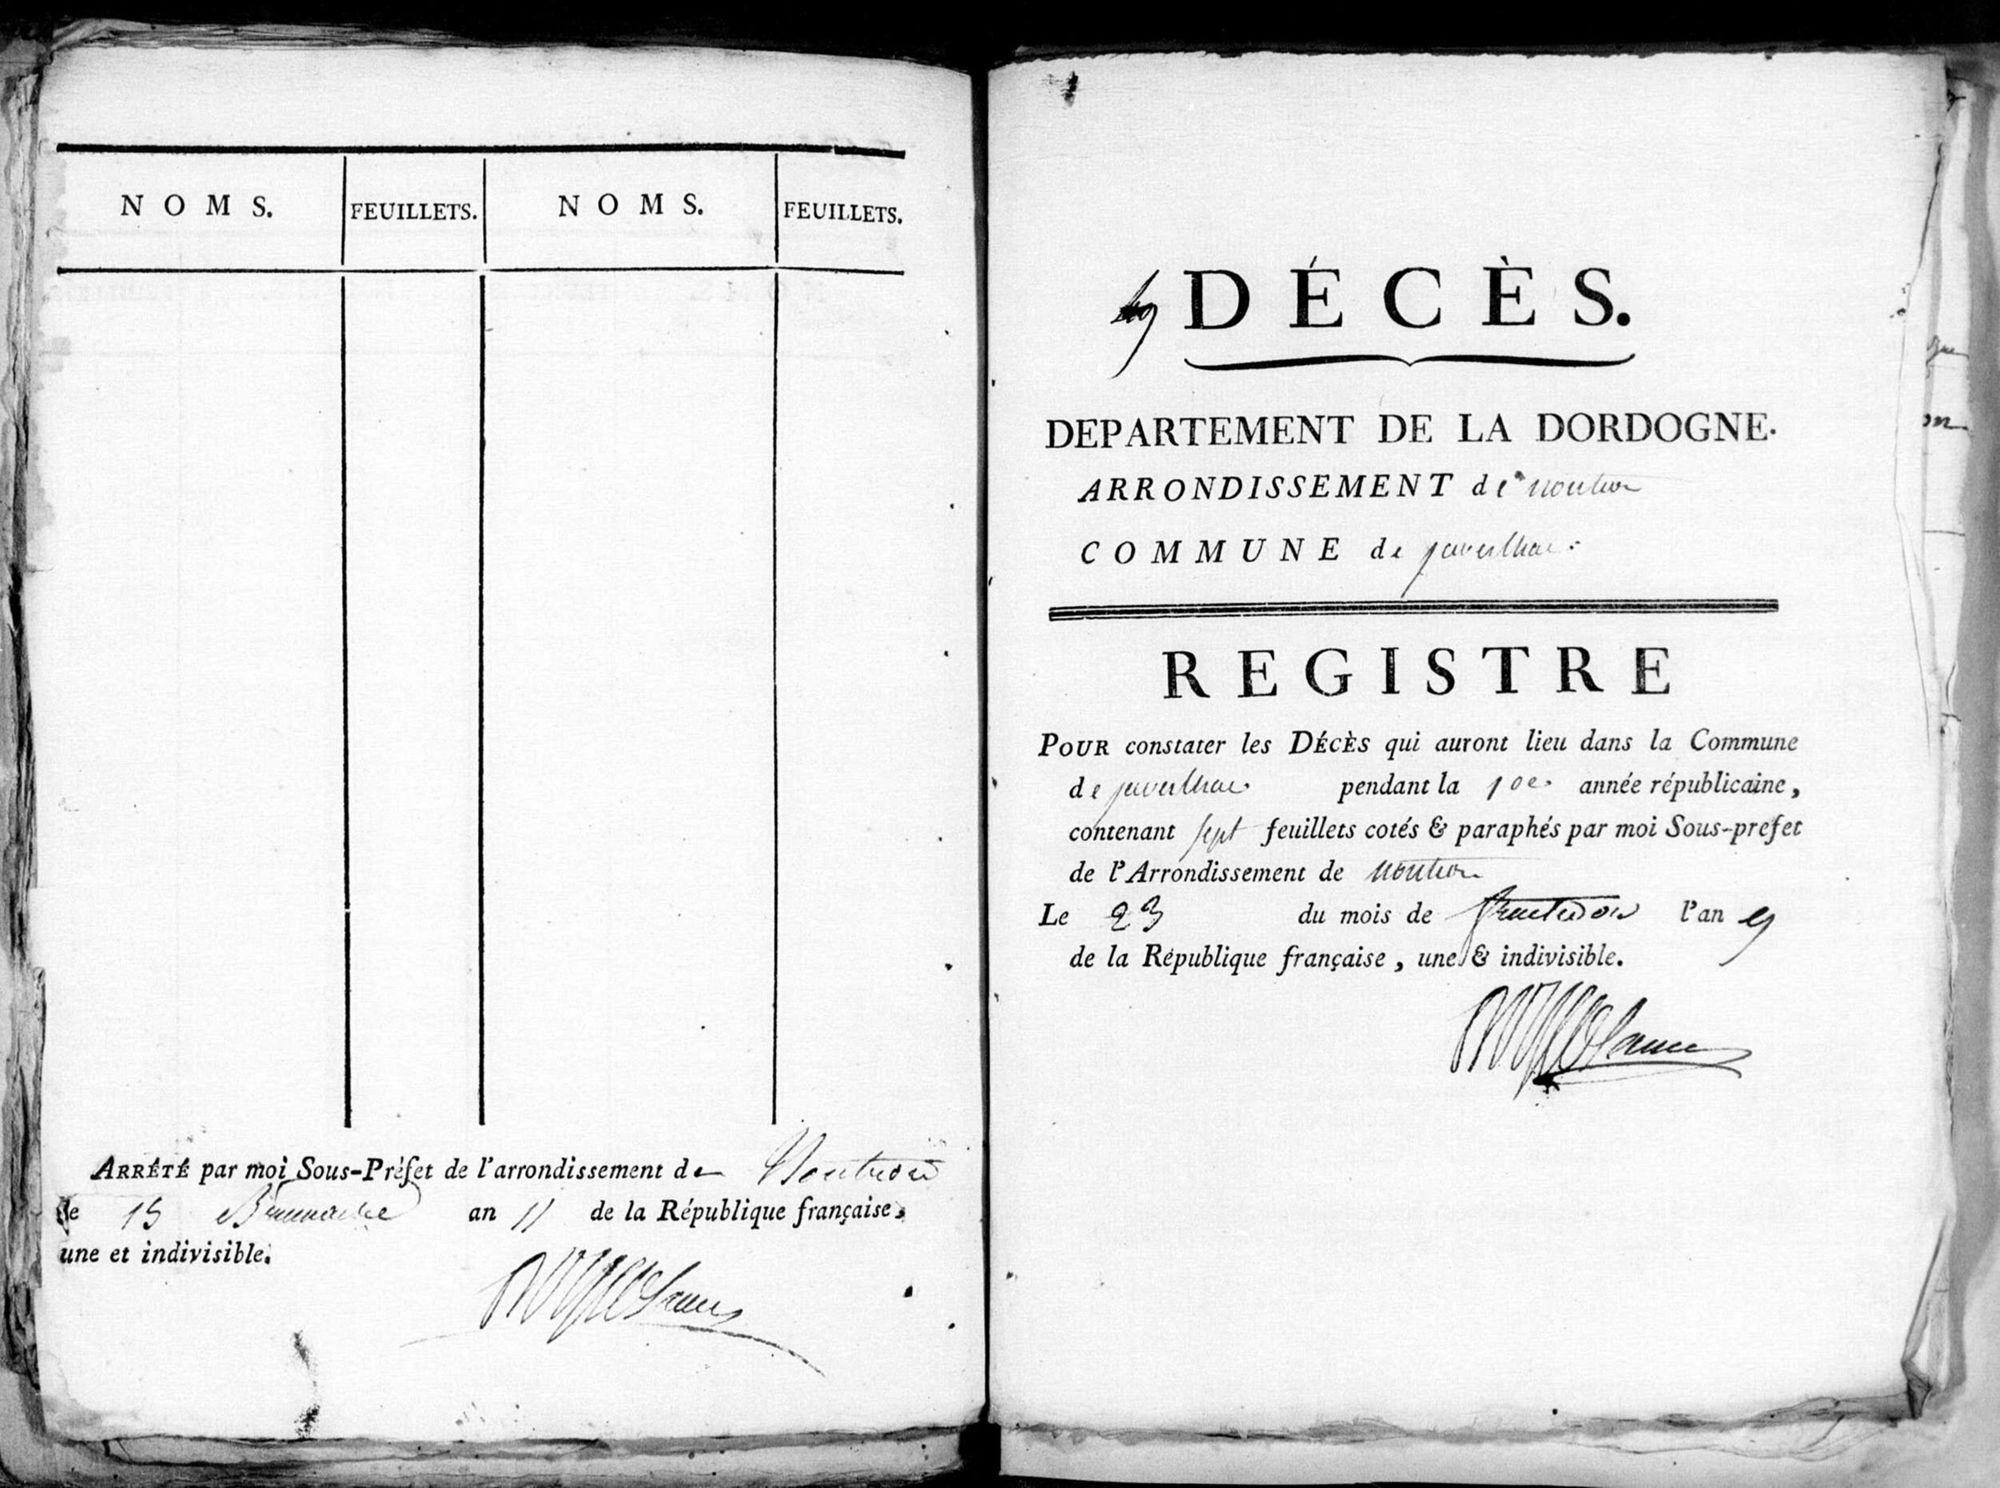 NOMS. FEUILLETS. NOMS. FEUILLETS.
ARRÊTÉ par moi Sous-Préfet de l'arrondissement de Nontron
le 15 Brumaire an 11 de la République française,
une et indivisible.
DÉCÈS.
DEPARTEMENT DE LA DORDOGNE.
ARRONDISSEMENT de nontron
COMMUNE de javerlhac
REGISTRE
POUR constater les DÉCÈS qui auront lieu dans la Commune
de javerlhac pendant la 10e année républicaine,
contenant sept feuillets cotés & paraphés par moi Sous-prefet
de l'Arrondissement de nontron
Le 23 du mois de fructidor l'an 9
de la République française, une & indivisible.